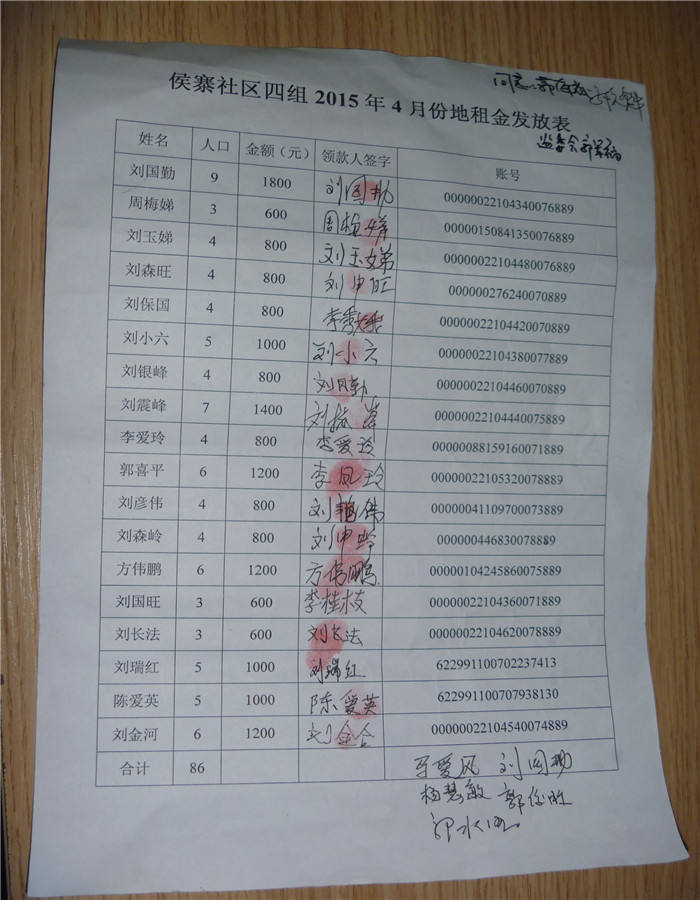 同意
侯寨社区四组 2015 年 4 月份地租金发放表
监委会
姓名 人口 金额（元） 领款人签字 账号
刘国勤 9 1800 刘国勤 00000022104340076889
周梅娣 3 600 周梅娣 00000150841350076889
刘玉娣 4 800 刘玉娣 00000022104480076889
刘森旺 4 800 刘中旺 000000276240070889
刘保国 4 800 00000022104420070889
刘小六 5 1000 刘小六 00000022104380077889
刘银峰 4 800 00000022104460070889
刘震峰 7 1400 00000022104440075889
李爱玲 4 800 李爱玲 00000088159160071889
郭喜平 6 1200 李凤玲 00000022105320078889
刘彦伟 4 800 00000041109700073889
刘森岭 4 800 000000446830078889
方伟鹏 6 1200 方伟鹏 00000104245860075889
刘国旺 3 600 李桂枝 00000022104360071889
刘长法 3 600 刘长法 00000022104620078889
刘瑞红 5 1000 刘瑞红 622991100702237413
陈爱英 5 1000 陈爱英 622991100707938130
刘金河 6 1200 00000022104540074889
合计 86
刘国勤
杨慧敏